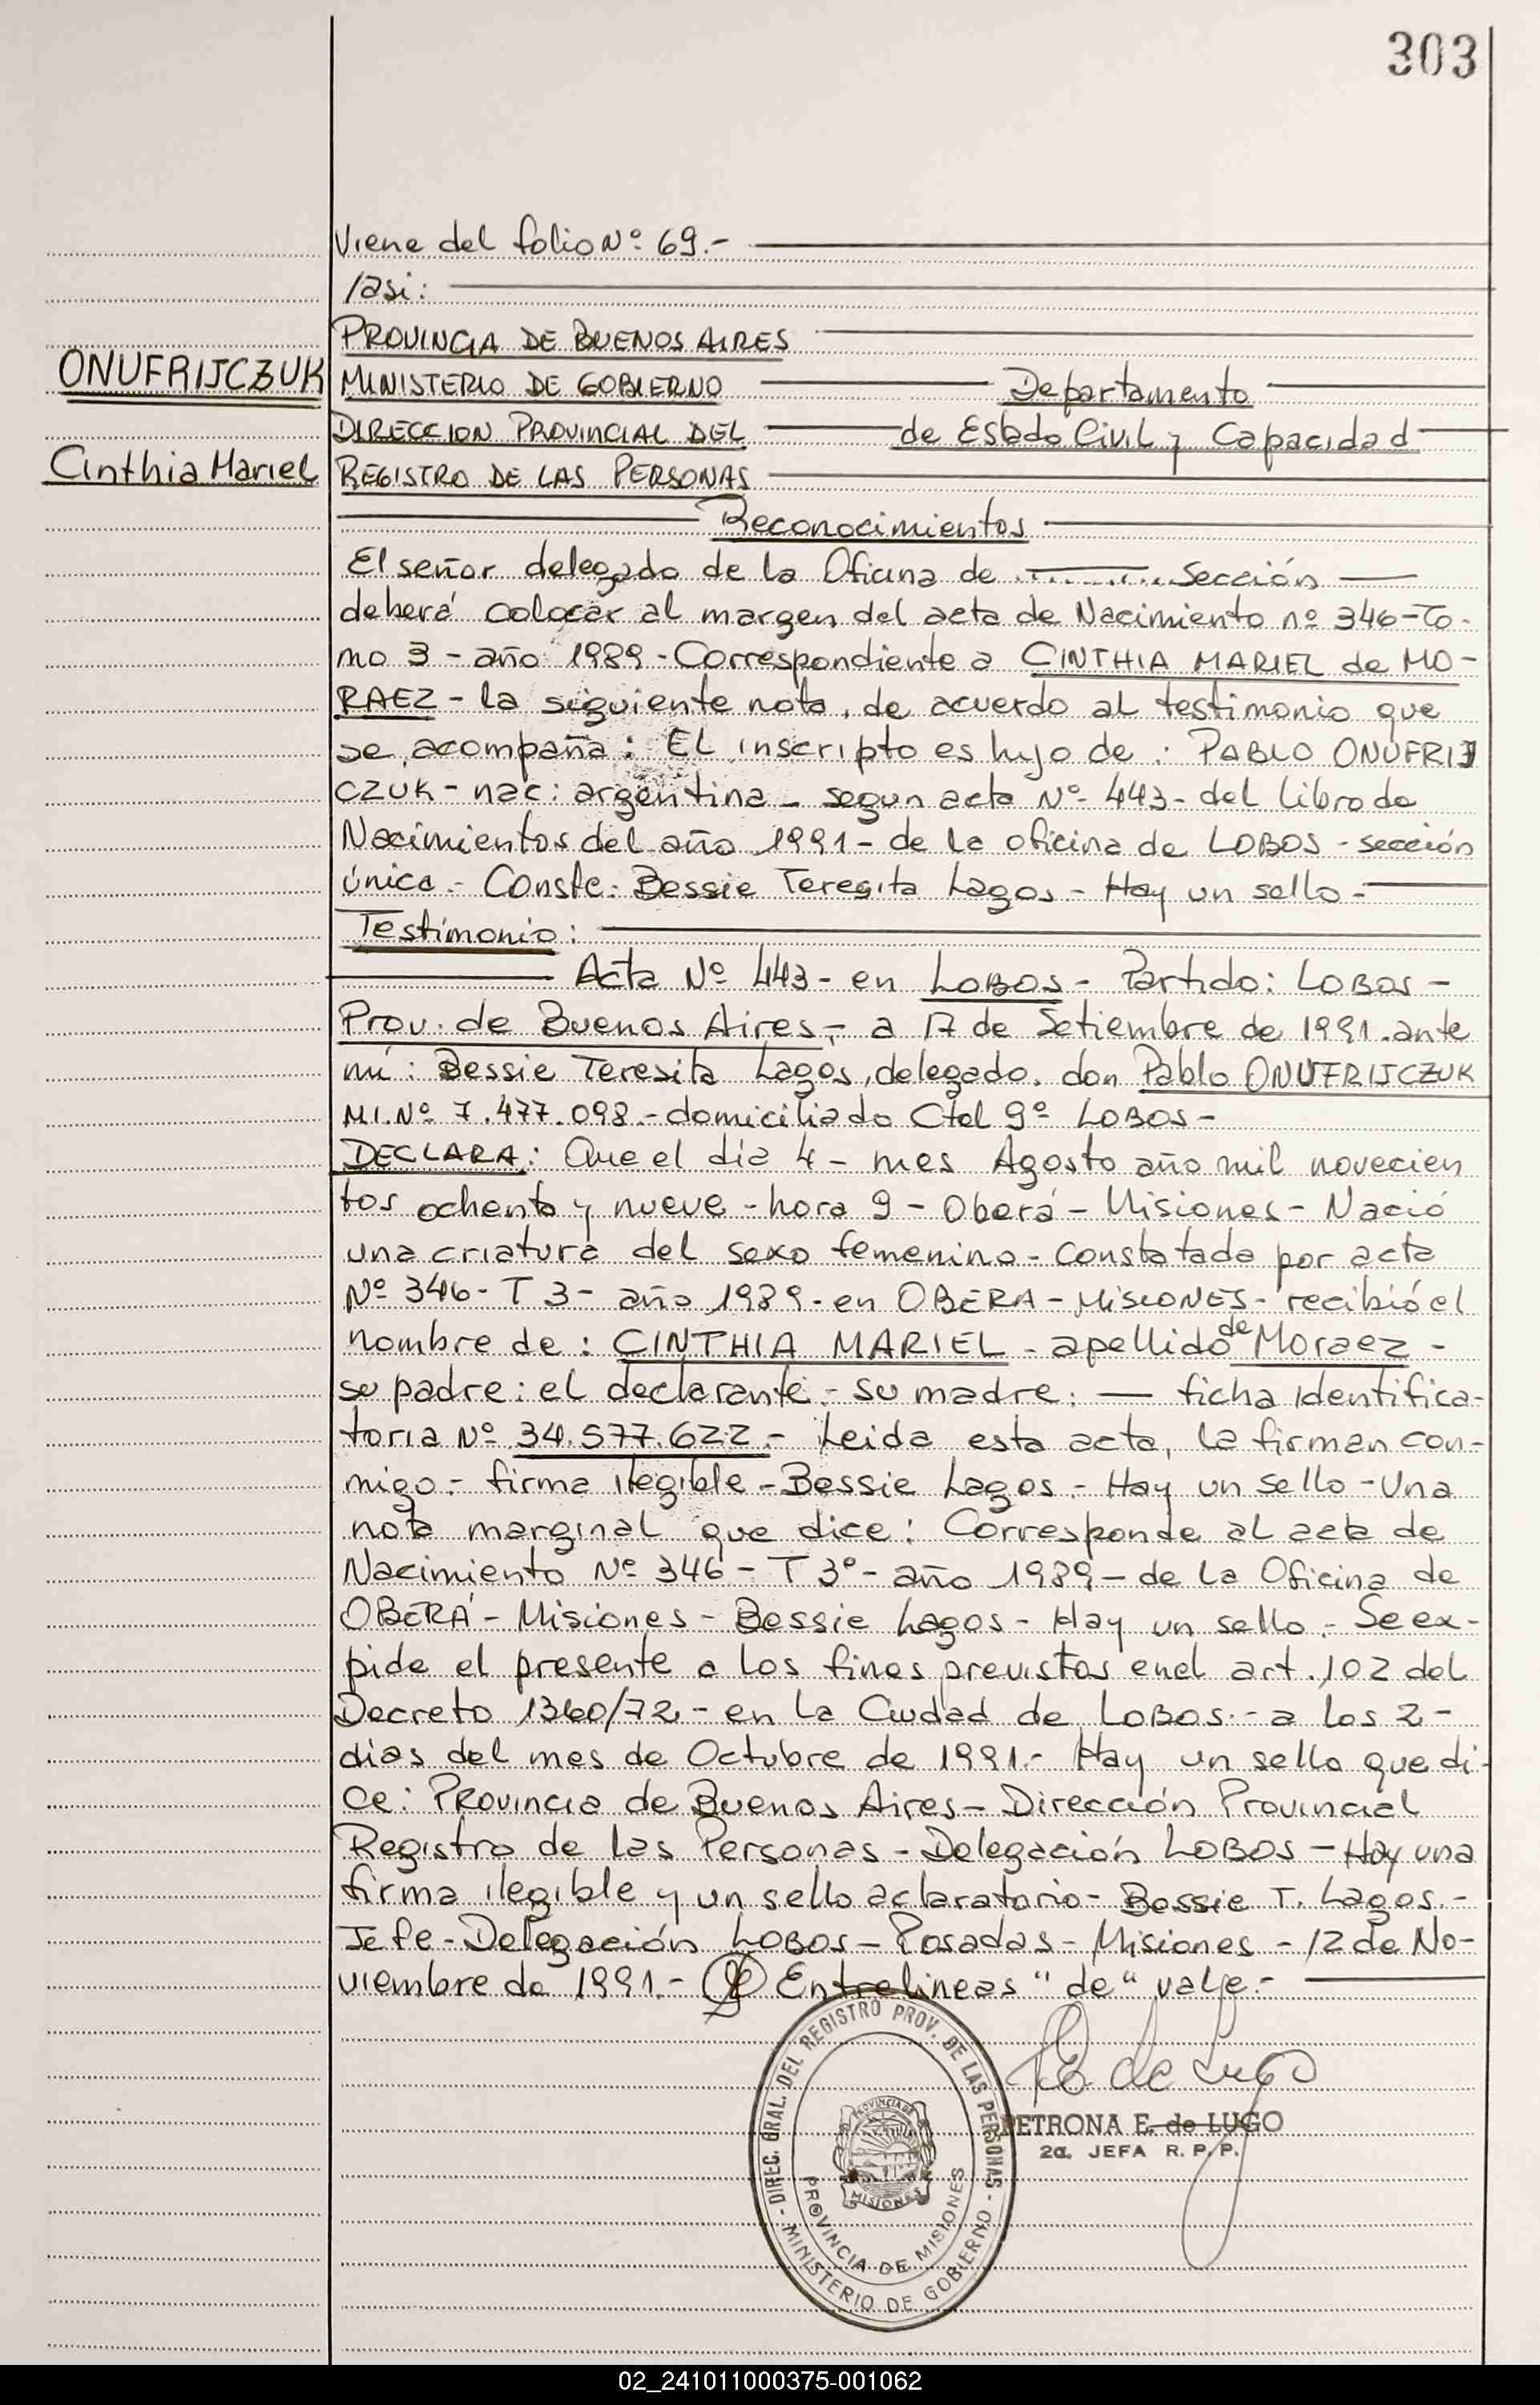 303
Viene del folio Nº 69.-
/asi:
PROVINCIA DE BUENOS AIRES
ONUFRIJCZUK
MINISTERIO DE GOBIERNO Departamento
DIRECCION PROVINCIAL DEL de Estado Civil y Capacidad
Cinthia Mariel
REGISTRO DE LAS PERSONAS
Reconocimientos
El señor delegado de la Oficina de ........... Sección —
deberá colocar al margen del acta de Nacimiento nº 346-To-
mo 3 - año 1989 - Correspondiente a CINTHIA MARIEL de MO-
RAEZ - la siguiente nota, de acuerdo al testimonio que
se acompaña: El inscripto es hijo de: PABLO ONUFRIJ
CZUK - nac: argentina - segun acta Nº 443 - del libro de
Nacimientos del año 1991 - de la oficina de LOBOS - sección
única.- Conste: Bessie Teresita Lagos - Hay un sello -
Testimonio:
Acta Nº 443 - en LOBOS - Partido: LOBOS -
Prov. de Buenos Aires,- a 17 de Setiembre de 1991. ante
mi: Bessie Teresita Lagos, delegado. don Pablo ONUFRIJCZUK
M.I. Nº 7.477.098.- domiciliado Ctel 9º LOBOS -
DECLARA: Que el dia 4 - mes Agosto año mil novecien
tos ochenta y nueve - hora 9 - Oberá - Misiones - Nació
una criatura del sexo femenino - Constatada por acta
Nº 346 - T 3 - año 1989 - en OBERA - MISIONES - recibió el
nombre de: CINTHIA MARIEL - apellido de Moraez -
su padre: el declarante - su madre: — ficha identifica-
toria Nº 34.577.622.- Leida esta acta, la firman con-
migo - firma ilegible - Bessie Lagos - Hay un sello - Una
nota marginal que dice: Corresponde al acta de
Nacimiento Nº 346 - T 3º - año 1989 - de la Oficina de
OBERÁ - Misiones - Bessie Lagos - Hay un sello.- Se ex-
pide el presente a los fines previstos en el art. 102 del
Decreto 1360/72 - en la Ciudad de LOBOS - a los 2 -
dias del mes de Octubre de 1991.- Hay un sello que di-
ce: Provincia de Buenos Aires - Dirección Provincial
Registro de las Personas - Delegación LOBOS - Hay una
firma ilegible y un sello aclaratorio - Bessie T. Lagos.-
Jefe - Delegación LOBOS - Posadas - Misiones - 12 de No-
viembre de 1991.- Entrelineas "de" vale.-
DIREC. GRAL. DEL REGISTRO PROV. DE LAS PERSONAS - MINISTERIO DE GOBIERNO -
PROVINCIA DE MISIONES
PROVINCIA DE
MISIONES
PE de Lugo
PETRONA E. de LUGO
2a. JEFA R. P. P.
02_241011000375-001062